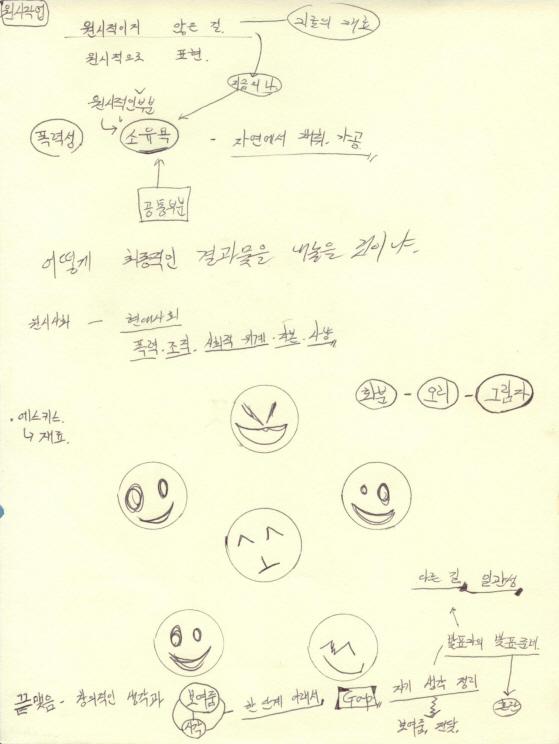 원시작업
원시적이지 않은 걸. 지금의 재료
원시적으로 표현.
지금의 나
원시적인 부분
폭력성. 소유욕 - 자연에서 채취. 가공
공통부분
어떻게 최종적인 결과물을 내놓을 것이냐.
원시사회 - 현대사회
폭력. 조직. 사회적 위계. 자본. 사냥
화분 - 오리 - 그림자
· 에스키스.
↳ 재료.
다른 길, 일관성
발표자의 발표준비
끝맺음 - 창의적인 생각과 보여줌 한 단계 아래서, 자기 생각 정리
생각
보여줌, 전달.